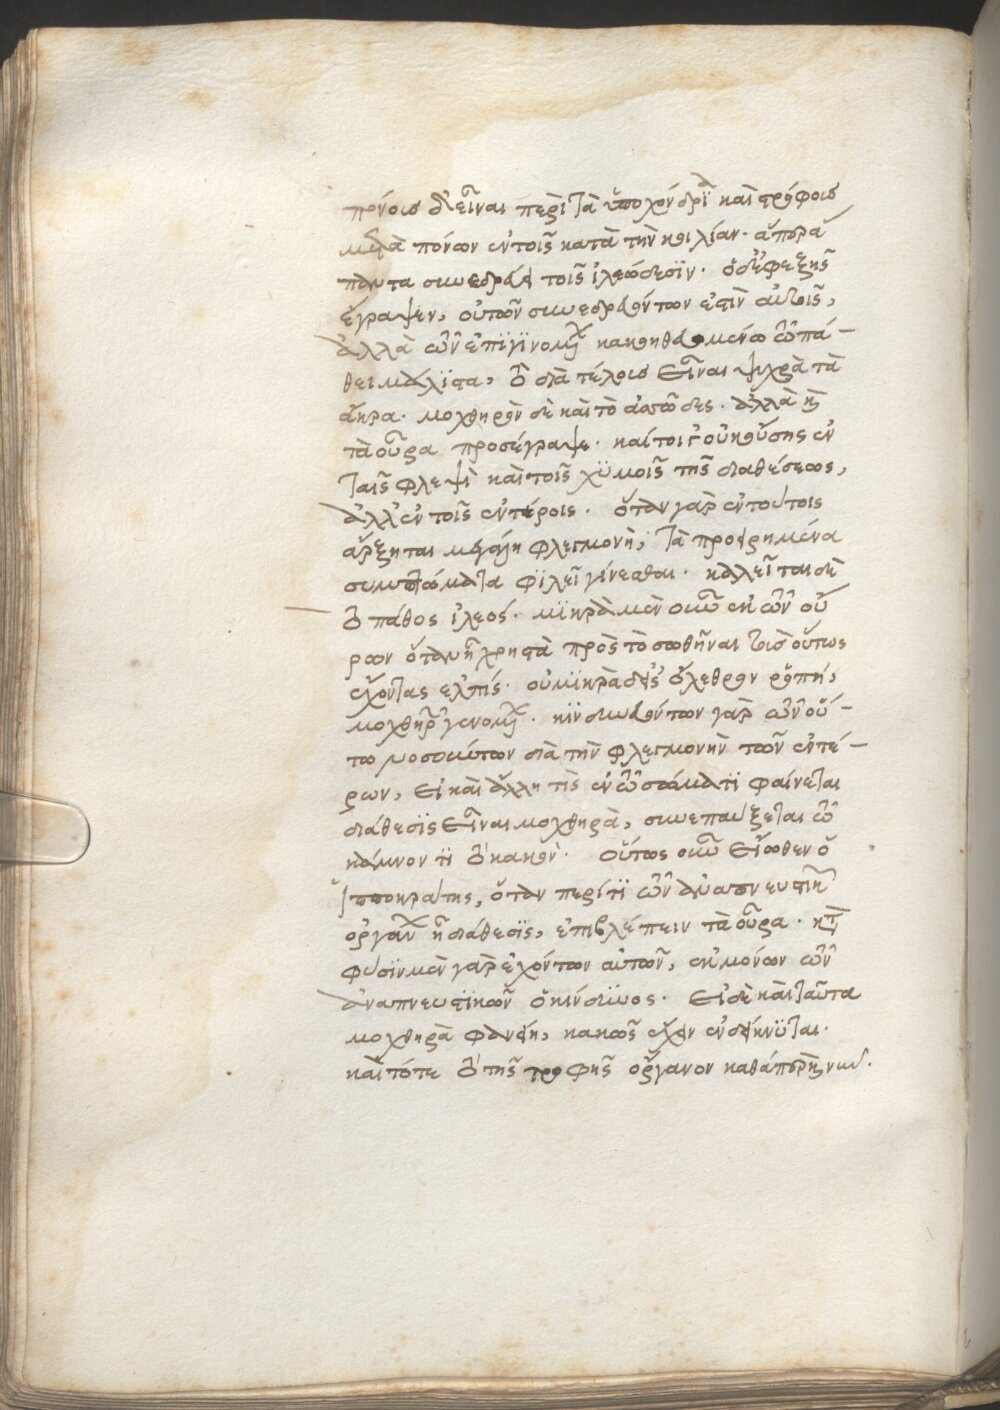 πόνοισ διεῖναι περὶ τὰ ὑποχόνδρϊα καὶ στρόφοισ
μετὰ πόνων ἐν τοῖς κατὰ τὴν κοιλίαν· ἅπερ ἅ
παντα συνεδρεύει τοῖς ἰλεώδεσϊν· ὁ δ' ἐφεξῆς
ἔγραψεν, οὐ τῶν συνεδρευόντων ἐστὶν αὐτοῖς,
ἀλλὰ τῶν ἐπϊγϊνομένων κακοηθευομένω τῶ πά-
θει μάλϊστα, τὸ διὰ τέλουσ εἶναι ψυχρὰ τὰ
ἄκρα· μοχθηρὸν δὲ καὶ τὸ ἀσῶδες· ἀλλὰ καὶ
τὰ οὖρα προσέγραψε· καίτοι γ' οὐκ οὔσης ἐν
ταῖς φλεψὶ καὶ τοῖς χϋμοῖς τῆς διαθέσεως,
ἀλλ' ἐν τοῖς ἐντέροις· ὅταν γὰρ ἐν τούτοις
ἄρξηται μεγάλη φλεγμονὴ, τὰ προειρημένα
συμπτώματα φϊλεῖ γίνεσθαι· καλεῖται δὲ
τὸ πάθος ἰλεός· μϊκρὰ μὲν οὖν ἐκ τῶν οὔ
ρων ὅταν ἦ χρηστὰ πρὸς τὸ σωθῆναι τοὺς οὕτως
ἔχοντας ἐλπίς· οὐ μϊκρὰ δ' εἰς ὄλεθρον ῥοπή,
μοχθηρῶν γενομένων· κϊνδυνευόντων γὰρ τῶν οὕ-
τω νοσούντων διὰ τὴν φλεγμονὴν τῶν ἐντέ-
ρων, εἰ καὶ ἄλλη τὶς ἐν τῶ σώματϊ φαίνεται
διάθεσϊς εἶναι μοχθηρὰ, συνεπαύξεται τῶ
κάμνοντϊ τὸ κακὸν· οὕτως οὖν εἴωθεν ὁ
ἱπποκράτης, ὅταν περί τϊ τῶν ἀναπνευστικῶν
ὀργάνων ἦ διάθεσϊς, ἐπιβλέπειν τὰ οὖρα· κατὰ
φύσϊν μὲν γὰρ ἐχόντων αὐτῶν, ἐκ μόνων τῶν
ἀναπνευστϊκῶν ὁ κίνδϋνος· εἰ δὲ καὶ ταῦτα
μοχθηρὰ φανείη, κακῶς ἔχειν ἐνδείκνϋται·
καὶ τότε τὸ τῆς τροφῆς ὄργανον καθάπερ ἦν